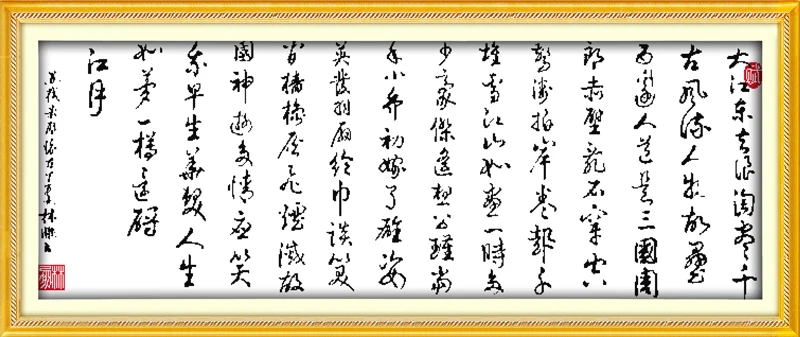 大江东去浪淘尽千
古风流人物故壘
西邊人道是三國周
郎赤壁亂石穿空
驚濤拍岸卷起千
堆雪江山如畫一時多
少豪傑遙想公瑾當
年小乔初嫁了雄姿
英發羽扇綸巾談笑
间檣櫓灰飞煙滅故
國神遊多情应笑
我早生華髮人生
如夢一樽還酹
江月